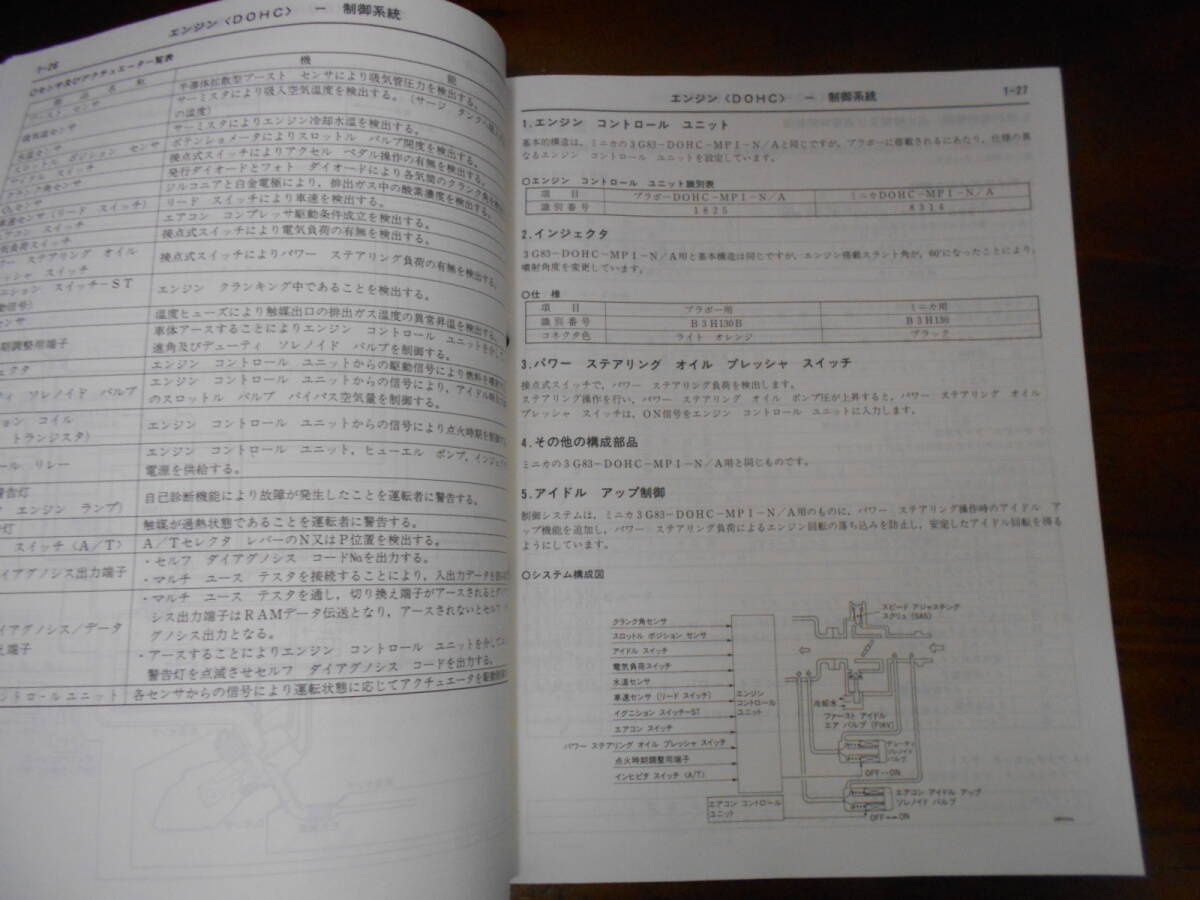 エンジン〈DOHC〉 － 制御系統
1-26
○センサ及びアクチュエータ一覧表
部 品 名 称 機 能
ブースト センサ 半導体拡散型ブースト センサにより吸気管圧力を検出する。
吸気温センサ サーミスタにより吸入空気温度を検出する。(サージ タンクへ
の温度)
水温センサ サーミスタによりエンジン冷却水温を検出する。
スロットル ポジション センサ ポテンショメータによりスロットル バルブ開度を検出する。
アイドル スイッチ 接点式スイッチによりアクセル ペダル操作の有無を検出する。
クランク角センサ 発行ダイオードとフォト ダイオードにより各気筒のクランク角を検
O₂センサ ジルコニアと白金電極により，排出ガス中の酸素濃度を検出する。
車速センサ(リード スイッチ) リード スイッチにより車速を検出する。
アコン スイッチ エアコン コンプレッサ駆動条件成立を検出する。
気負荷スイッチ 接点式スイッチにより電気負荷の有無を検出する。
ー ステアリング オイル
ッシャ スイッチ 接点式スイッチによりパワー ステアリング負荷の有無を検出する。
ニション スイッチ－ST エンジン クランキング中であることを検出する。
動信号)
センサ 温度ヒューズにより触媒出口の排出ガス温度の異常昇温を検出する。
期調整用端子 車体アースすることによりエンジン コントロール ユニットを介して
進角及びデューティ ソレノイド バルブを制御する。
ェクタ エンジン コントロール ユニットからの駆動信号により燃料を噴射
ティ ソレノイド バルブ エンジン コントロール ユニットからの信号により，アイドル時
のスロットル バルブ バイパス空気量を制御する。
ョン コイル
トランジスタ) エンジン コントロール ユニットからの信号により点火時期を制御
ール リレー エンジン コントロール ユニット，ヒューエル ポンプ，インジェ
電源を供給する。
警告灯
エンジン ランプ) 自己診断機能により故障が発生したことを運転者に警告する。
灯 触媒が過熱状態であることを運転者に警告する。
スイッチ(A／T) A／Tセレクタ レバーのN又はP位置を検出する。
イアグノシス出力端子 ・セルフ ダイアグノシス コードNo.を出力する。
・マルチ ユース テスタを接続することにより，入出力データを
イアグノシス／データ
え端子 ・マルチ ユース テスタを通し，切り換え端子がアースされるとダイ
シス出力端子はRAMデータ伝送となり，アースされないとセルフ
グノシス出力となる。
・アースすることによりエンジン コントロール ユニットを介して
警告灯を点滅させセルフ ダイアグノシス コードを出力する。
ントロールユニット 各センサからの信号により運転状態に応じてアクチュエータを駆動制御
エンジン〈DOHC〉 － 制御系統
1-27
1.エンジン コントロール ユニット
基本的構造は，ミニカの3G83－DOHC－MPI－N／Aと同じですが，ブラボーに搭載されるにあたり，仕様の異
なるエンジン コントロール ユニットを設定しています。
○エンジン コントロール ユニット識別表
項 目 ブラボーDOHC－MPI－N／A ミニカDOHC－MPI－N／A
識別番号 1825 8314
2.インジェクタ
3G83－DOHC－MPI－N／A用と基本構造は同じですが，エンジン搭載スラント角が，60°になったことにより，
噴射角度を変更しています。
○仕 様
項 目 ブラボー用 ミニカ用
識別番号 B3H130B B3H130
コネクタ色 ライト オレンジ ブラック
3.パワー ステアリング オイル プレッシャ スイッチ
接点式スイッチで，パワー ステアリング負荷を検出します。
ステアリング操作を行い，パワー ステアリング オイル ポンプ圧が上昇すると，パワー ステアリング オイル
プレッシャ スイッチは，ON信号をエンジン コントロール ユニットに入力します。
4.その他の構成部品
ミニカの3G83－DOHC－MPI－N／A用と同じものです。
5.アイドル アップ制御
制御システムは，ミニカ3G83－DOHC－MPI－N／A用のものに，パワー ステアリング操作時のアイドル ア
ップ機能を追加し，パワー ステアリング負荷によるエンジン回転の落ち込みを防止し，安定したアイドル回転を得る
ようにしています。
○システム構成図
クランク角センサ
スロットル ポジション センサ
アイドル スイッチ
電気負荷スイッチ
水温センサ
車速センサ(リード スイッチ)
イグニション スイッチ－ST
エアコン スイッチ
パワー ステアリング オイル プレッシャ スイッチ
点火時期調整用端子
インヒビタ スイッチ(A/T)
エンジン
コントロール
ユニット
エアコン コントロール
ユニット
スピード アジャスチング
スクリュ(SAS)
冷却水
ファースト アイドル
エア バルブ(FIAV)
デューティ
ソレノイド
バルブ
OFF↔ON
エアコン アイドル アップ
ソレノイド バルブ
OFF↔ON